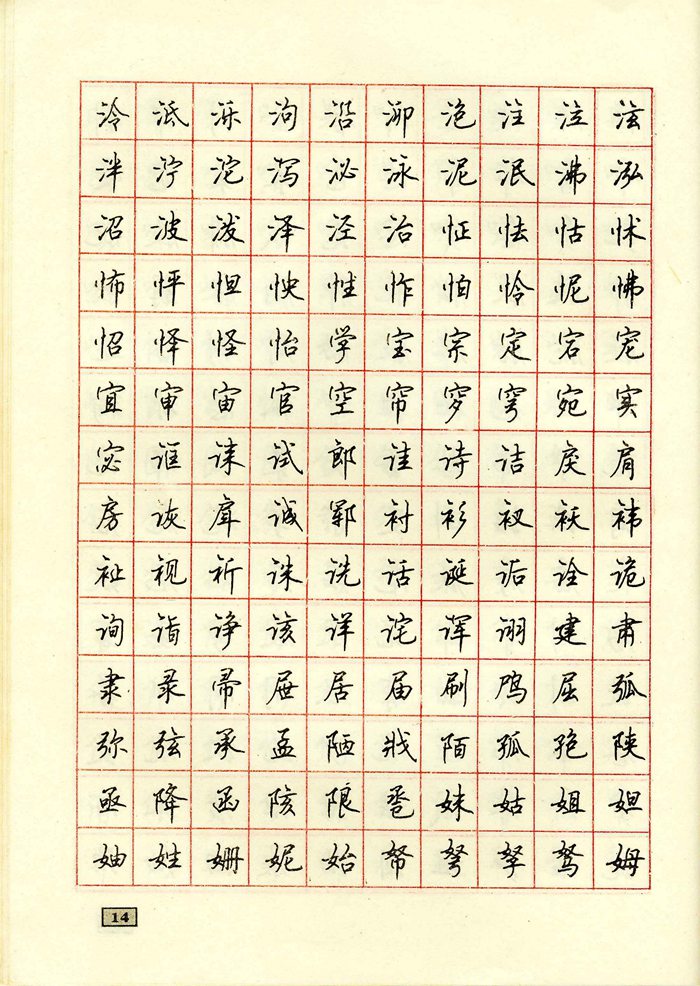 泠泜泺泃沿泖泡注泣泫
泮泞沱泻泌泳泥泯沸泓
沼波泼泽泾治怔怯怙怵
怖怦怛怏性怍怕怜怩怫
怊怿怪怡学宝宗定宕宠
宜审宙官空帘穸穹宛实
宓诓诔试郎诖诗诘戾肩
房诙戽诚郓衬衫衩祆祎
祉视祈诛诜话诞诟诠诡
询诣诤该详诧诨诩建肃
隶录帚屉居届刷鸤屈弧
弥弦承孟陋戕陌孤孢陕
亟降函陔限卺妹姑姐妲
妯姓姗妮始帑弩孥驽姆
14